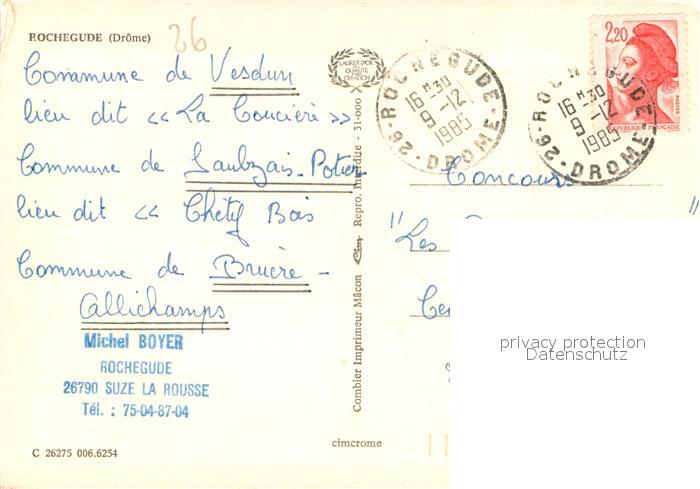 ROCHEGUDE (Drôme)
26
Commune de Vesdun
lieu dit « La Coucière »
Commune de Saulzais-Potier
lieu dit « Chétif Bois
Commune de Bruère -
Allichamps
Michel BOYER
ROCHEGUDE
26790 SUZE LA ROUSSE
Tél. : 75-04-87-04
C 26275 006.6254
cimcrome
Combier Imprimeur Mâcon Cim Repro. Interdite - 31-000
LAURIER D'OR
DE QUALITÉ
CRÉATION
26 - ROCHEGUDE - DROME
16 H 30
9-12
1985
26 - ROCHEGUDE - DROME
16 H 30
9-12
1985
2,20
POSTES
REPUBLIQUE FRANÇAISE
Concours
" Les "
privacy protection
Datenschutz